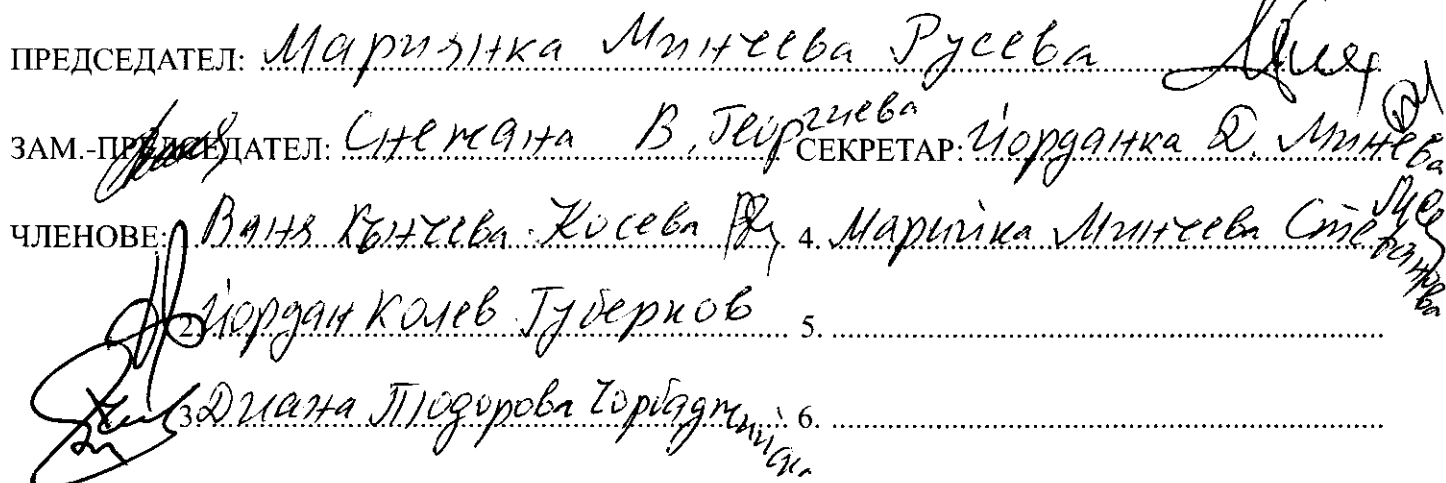 ПРЕДСЕДАТЕЛ: Мариянка Минчева Русева
ЗАМ.-ПРЕДСЕДАТЕЛ: Снежана В. Георгиева СЕКРЕТАР: Йорданка Д. Минчева
ЧЛЕНОВЕ: 1. Ваня Кънчева Косева 4. Марийка Минчева Стефанова
2. Йордан Колев Губернов 5.
3. Диана Тодорова Чорбаджийска 6.